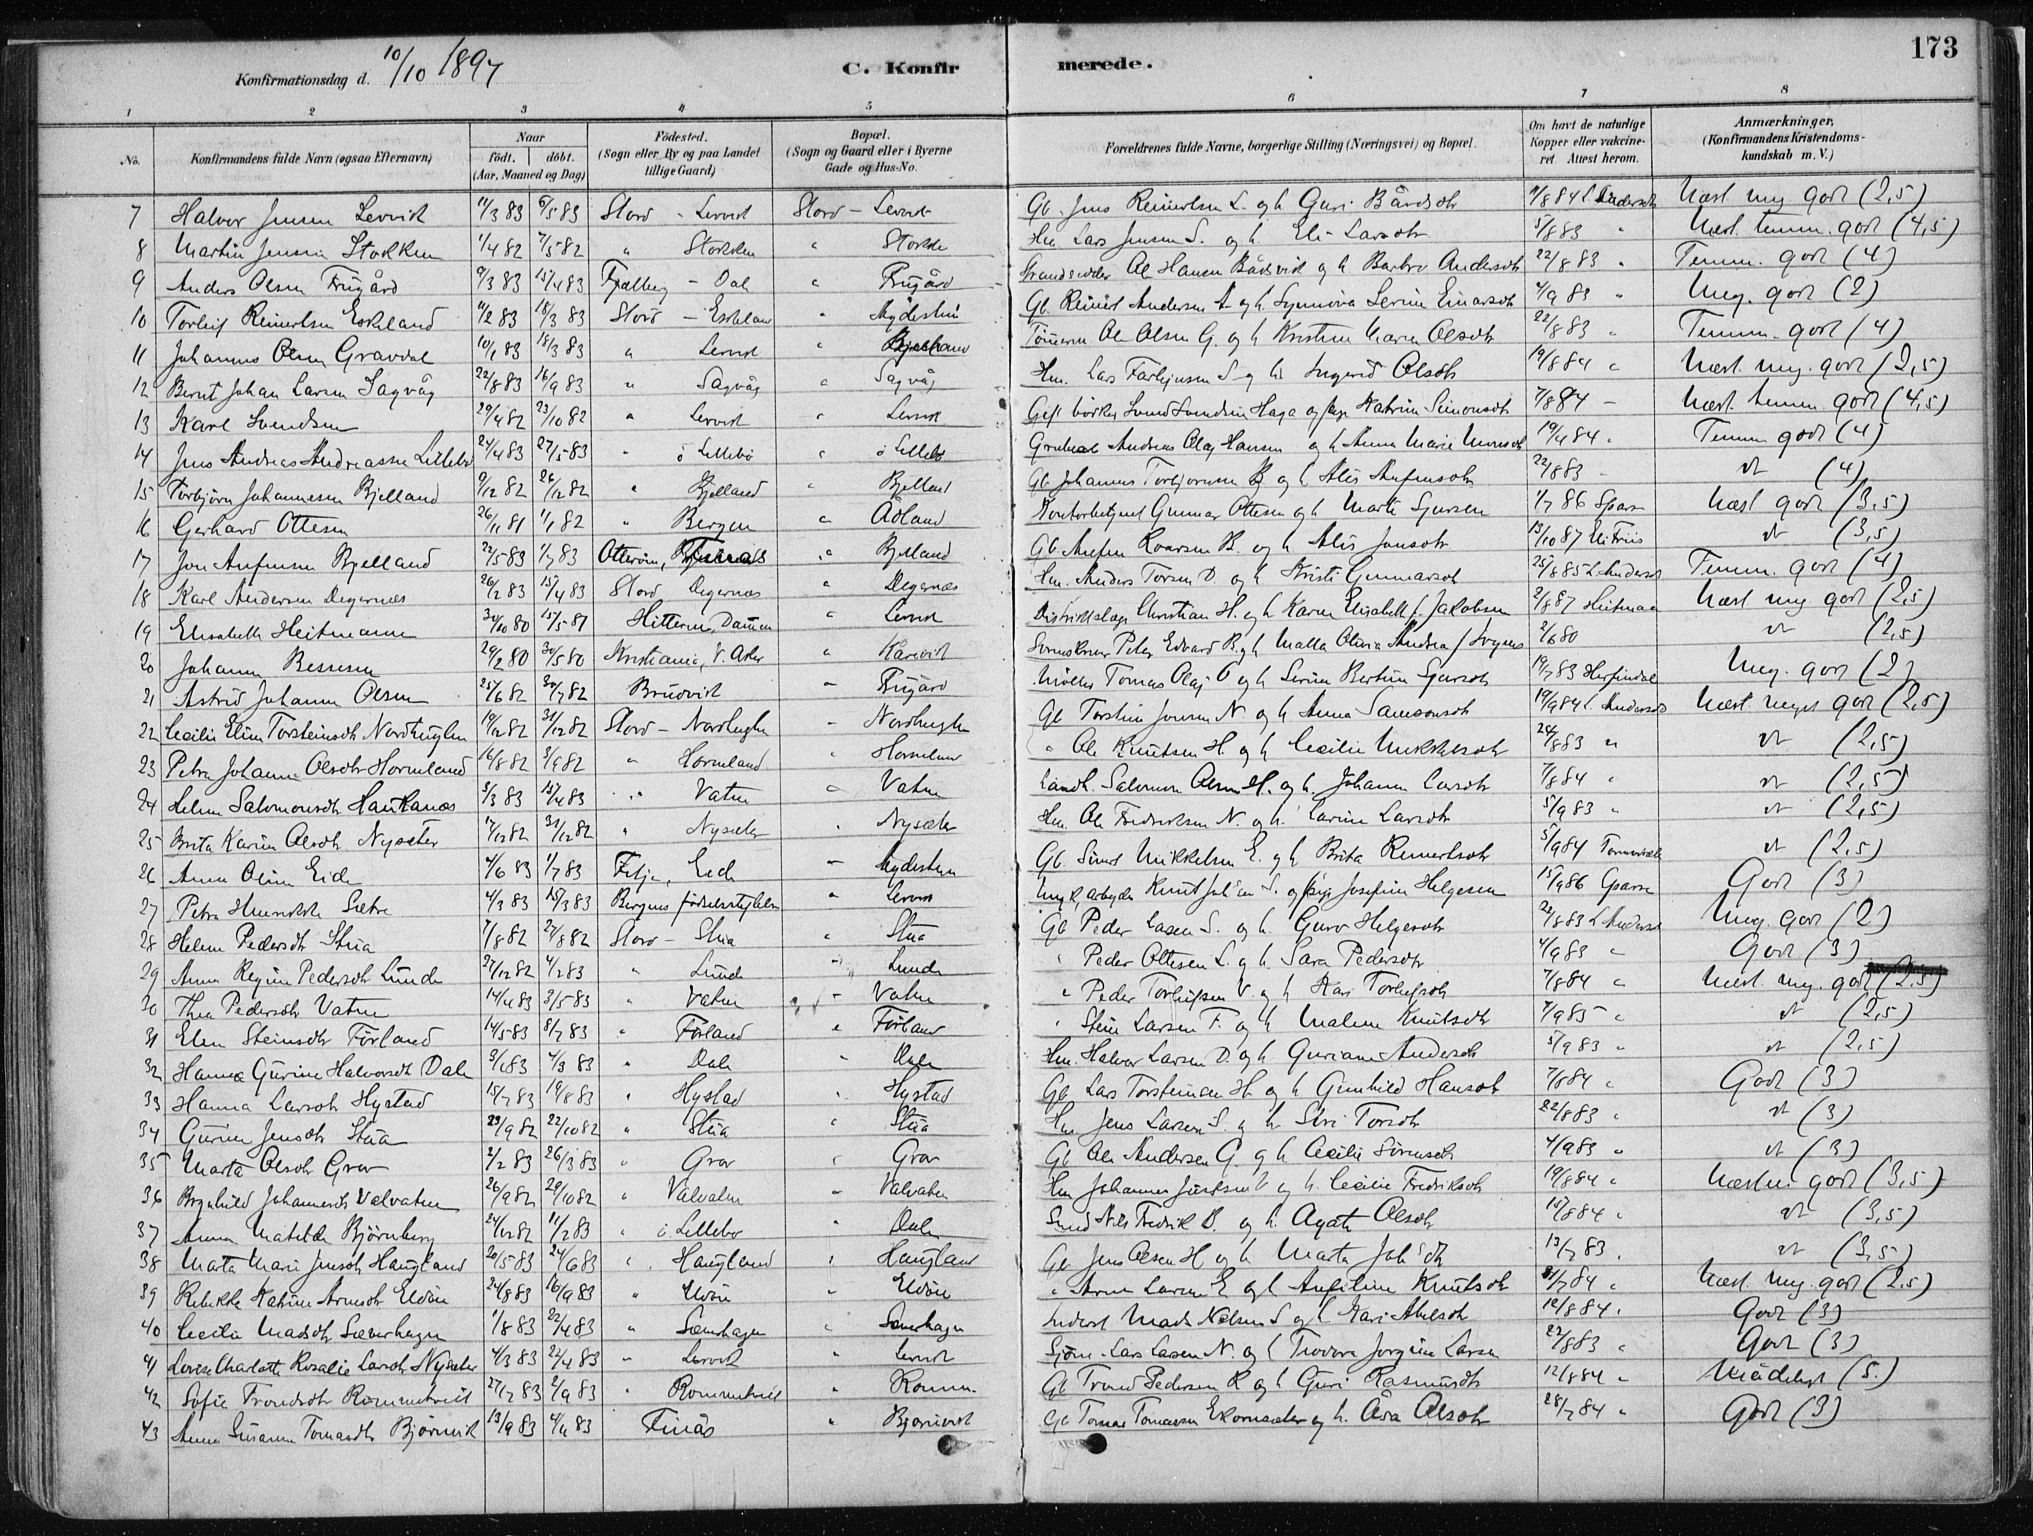 Konfirmationsdag d. 10/10 1897
C. Konfirmerede.
173
1 2 3 4 5 6 7 8
No.
Konfirmandens fulde Navn (ogsaa Efternavn)
Naar født. døbt. (Aar, Maaned og Dag)
Fødested. (Sogn eller By og paa Landet tillige Gaard)
Bopæl. (Sogn og Gaard eller i Byerne Gade og Hus-No.
Forældrenes fulde Navne, borgerlige Stilling (Næringsvei) og Bopæl.
Om havt de naturlige Kopper eller vakcineret Attest herom.
Anmærkninger, (Konfirmandens Kristendomskundskab m. V.)
7 Halvor Jensen Lervik 11/3 83 6/5 83 Stord - Lervik Stord - Lervik Gb. Jens Reinertsen L. og h. Guri Bårdsdtr 11/8 84 L. Anderson Næst meg. godt (2,5)
8 Martin Jensen Stokken 1/4 82 7/5 82 " Stokken " Stokken Hm Lars Jensen S. og h. Eli Larsdtr 5/8 83 " Næst. temm. godt (4,5)
9 Anders Olsen Frugård 9/3 83 15/4 83 Fjelberg - Dal " Frugård Strandsidder Ole Hansen Bådsvik og h Barbro Andersdtr 22/8 83 " Temm. godt (4)
10 Torleif Reinertsen Eskeland 11/2 83 18/3 83 Stord - Eskeland " Gb. Reinert Andersen A og h. Synnøva Serine Einarsdtr 4/9 83 " Meg. godt (2)
11 Johannes Olsen Gravdal 10/1 83 18/3 83 " Lervik " Tømrerm Ole Olsen G. og h Kristine Maria Olsdtr 22/8 83 " Temm. godt (4)
12 Bernt Johan Larsen Sagvåg 22/8 83 16/9 83 " Sagvåg " Sagvåg Hm. Lars S. og h. Ingerid Olsdtr 19/8 84 " Næst. meg. godt (2,5)
13 Karl Svendsen 29/4 82 23/10 82 " Lervik " Lervik Svend Svendsen Haga og Katrine Simonsdtr 7/8 84 - Næst temm. godt (4,5)
14 Jens Andreas Andreassen Lillebø 24/4 83 27/5 83 " ö Lillebö " ö Lillebö Andreas Olaj Hansen og h Anna Marie Monsdtr 19/4 84 " Temm godt (4)
15 Torbjørn Johannesen Bjelland 9/12 82 26/12 82 " Bjelland " Bjelland Gb Johannes Torbjørnsen B og h Alis Anfinsdtr 22/8 83 - dt (4)
16 Gerhard Ottesen 26/11 81 1/1 82 " Bergen " Ådland Gunnar Ottesen og h Marte Sjursen 1/7 86 Sparre Næst godt (3,5)
17 Jon Anfinsen Bjelland 22/5 83 1/7 83 Otterøen, " Bjelland Gb Anfin Roarsen B. og h Alis Jonsdtr 13/10 87 dt (3,5)
18 Karl Andersen Degernæs 26/2 83 15/4 83 Stord Degernæs " Degernæs Hm. Anders Torsen D. og h Kristi Gunnarsdtr 25/8 85 L. Anderson Temm. godt (4)
19 Elisabeth Heitmann 30/10 80 15/5 81 Hitteren, " Lervik Distriktslæge Christian H. og h Karen Elisabeth f. Jakobsen 2/8 87 Heitmann Næst meg godt (2,5)
20 Johanna Bessesen 29/2 80 30/5 80 Kristiania, V. Aker " Kårevik Peter Edvard B. og h Malla Olivia Andrea 2/6 80 dt (2,5)
21 Astrid Johanne Olsen 25/6 82 30/7 82 Bruvik " Frugård Møller Tomas Olaj O og h Serina Bertine Sjursdtr 19/7 83 Herfindal Meg. godt (2)
22 Cecilia Elina Torsteinsdtr Nordhuglen 19/12 82 31/12 82 Stord - Nordhuglen - Nordhuglen Gb Torstein Jonsen N. og h Anna Samsonsdtr 19/9 84 L. Anderson Næst. meget godt (2,5)
23 Petra Johanne Olsdtr Horneland 16/8 82 3/9 82 " Horneland " Horneland " Ole Knutsen H. og h Cecilie Mikkelsdtr 24/8 83 " dt (2,5)
24 Helene Salomonsdtr Haukanæs 5/3 83 15/4 83 " Vatne " Vatne Landh. Salomon Olsen H. og h. Johanna Larsdtr 7/8 84 " dt (2,5)
25 Brita Karine Olsdtr Nysæter 17/12 82 31/12 82 " Nysæter " Nysæter Hm. Ole Fredriksen N. og h. Larine Larsdtr 5/9 83 " dt (2,5)
26 Anna Oline Eide 4/6 83 1/7 83 Fitje, Eide - Gb. Simon Mikkelsen E. og h. Brita Reinertsdtr 5/9 84 dt (2,5)
27 Petra Henrikke Sætre 4/3 83 15/3 83 Bergens fødselsstiftelse " Lervik Knut Joh's'en S. og Josefine Helgesen 15/9 86 Sparre Godt (3)
28 Helene Pedersdtr Stua 7/8 82 27/8 82 Stord - Stua " Stua Gb Peder Lasen S. og h. Guro Helgesdtr 22/8 83 L. Anderson Meg. godt (2)
29 Anna Regine Pedersdtr Lunde 27/12 82 4/2 83 " Lunde " Lunde " Peder Ottesen L. og h. Sara Pedersdtr 4/9 83 " Godt (3)
30 Thea Pedersdtr Vatne 14/4 83 3/5 83 " Vatne " Vatne " Peder Torleifsen V. og h Kari Torleifsdtr 7/8 84 " Næst. meg. godt (2.5)
31 Elen Steinsdtr Førland 14/5 83 8/7 83 " Førland " Førland " Stein Larsen F. og h Malene Knutsdtr 7/9 85 " dt (2,5)
32 Hanna Gurine Halvorsdtr Dale 3/1 83 4/3 83 " Dale " Dale Hm. Halvor Larsen D. og h Guriane Andersdtr 5/9 83 " dt (2,5)
33 Hanna Larsdtr Hystad 15/7 83 19/8 83 " Hystad " Hystad Gb Lars Torsteinsen H. og h Gunhild Hansdtr 7/8 84 " Godt (3)
34 Gurine Jensdtr Stua 23/9 82 22/10 82 " Stua " Stua Hm Jens Larsen S. og h Siri Torsdtr 22/8 83 " dt (3)
35 Marta Olsdtr Grov 2/2 83 26/3 83 " Grov " Grov Gb Ole Andersen G. og h Cecilie Sörensdtr 4/9 83 " dt (3)
36 Brynhild Johannesdtr Valvatne 26/9 82 29/10 82 " Valvatne " Valvatne Hm Johannes V og h. Cecilie Fredriksdtr 19/8 84 " Næsten godt (3,5)
37 Anna Matilda Bjørnberg 24/12 82 11/2 83 " ö Lillebø " Dale Smed Nils Fredrik B. og h. Agate Olsdtr 15/8 84 " dt (3,5)
38 Marta Marie Jensdtr Haugland 20/5 83 24/6 83 " Haugland " Haugland Gb Jens Olsen H og h Marta Joh'sdtr 13/7 83 " dt (3,5)
39 Rebekka Katrine Arnesdtr Eldøen 24/8 83 16/9 83 " Eldøen " Eldøen " Arne Larsen E og h Anfeline Knutsdtr 31/7 84 " Næst. meg. godt (2,5)
40 Cecilia Madsdtr Sæverhagen 1/8 83 22/4 83 " Sæverhagen " Sæverhagen Inderst Mads Nilsen S og h Kari Abelsdtr 12/8 84 " Godt (3)
41 Lovise Charlotte Rosalie Larsdtr Nysæter 4/3 83 22/4 83 " Lervik " Lervik Sjöm. Lars Lasen N. og h Teodora Jorgine Larsen 22/8 83 " Godt (3)
42 Sofie Trondsdtr Rommetveit 27/7 83 2/9 83 " Rommetveit " Romm. Gb Trond Pedersen R og h Guri Rasmusdtr 12/8 84 " Mådeligt (5.)
43 Anna Susanna Tomasdtr Bjørnevik 13/9 83 4/11 83 Finås " Bjørnevik Gb Tomas Tomassen Ekornsæter og h. Åsa Olsdtr 28/7 84 " Godt (3)